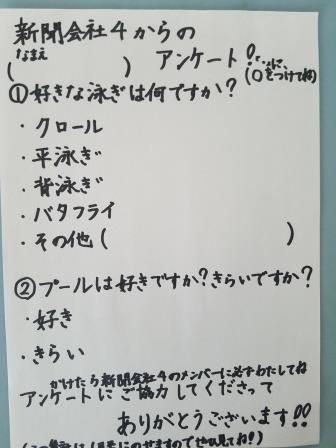 新聞会社4からの
アンケート!
なまえ
(　　　　　)
(○をつけて
①好きな泳ぎは何ですか?
・クロール
・平泳ぎ
・背泳ぎ
・バタフライ
・その他(　　　　　　　　)
②プールは好きですか?きらいですか?
・好き
・きらい
かけたら新聞会社4のメンバーに必ずわたしてね
アンケートにご協力してくださって
ありがとうございます!!
のせますのでぜひ見てね!)